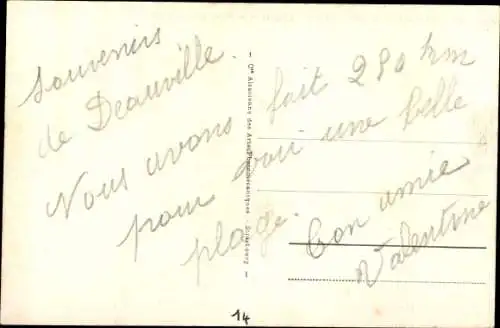 Souvenirs
de Deauville
Nous avons fait 290 km
pour voir une belle
plage.
Ton amie
Valentine
Cie Alsacienne des Arts Photomécaniques - Strasbourg
14